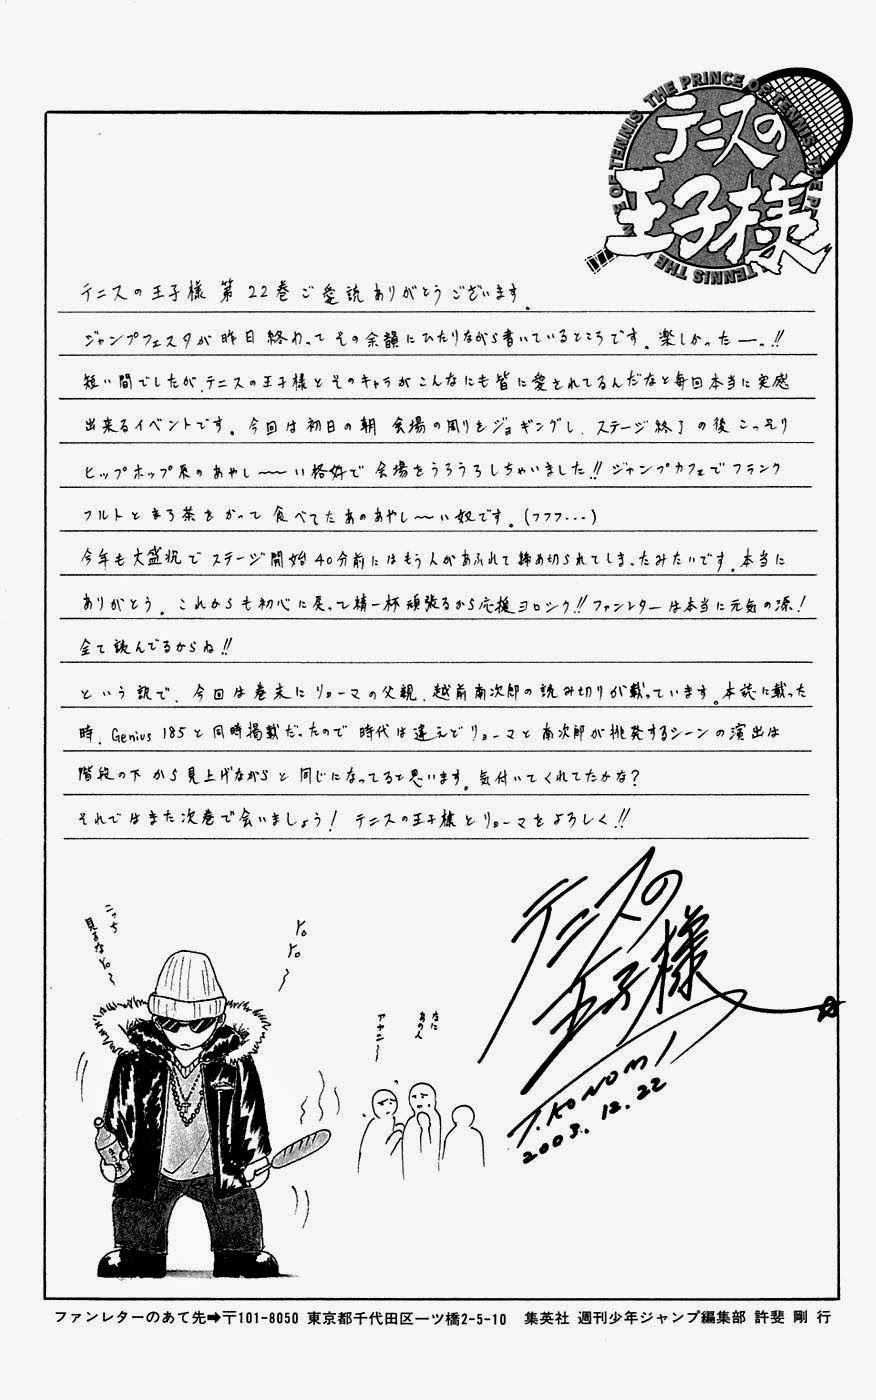 THE PRINCE OF TENNIS
テニスの
王子様
テニスの王子様 第22巻ご愛読ありがとうございます。
ジャンプフェスタが昨日終わって その余韻にひたりながら書いているところです。楽しかったーっ!!
短い間でしたが、テニスの王子様とそのキャラがこんなにも皆に愛されてるんだなと毎回本当に実感
出来るイベントです。今回は初日の朝 会場の周りをジョギングし、ステージ終了の後 こっそり
ヒップホップ系のあやし〜〜い格好で 会場をうろうろしちゃいました!! ジャンプカフェで フランク
フルトとまろ茶をかって食べてたあのあやし〜い奴です。(フフフ・・・)
今年も大盛況で ステージ開始40分前にはもう人があふれて締め切られてしまったみたいです。本当に
ありがとう。これからも初心に戻って精一杯頑張るから応援ヨロシク!! ファンレターは本当に元気の源!
全て読んでるからね!!
という訳で、今回は巻末にリョーマの父親、越前南次郎の読み切りが載っています。本誌に載った
時、Genius 185と同時掲載だったので 時代は違えどリョーマと南次郎が挑発するシーンの演出は
階段の下から見上げながらと同じになってると思います。気付いてくれてたかな?
それではまた次巻で会いましょう! テニスの王子様とリョーマをよろしく!!
こっち
見るなYo〜
Yo
Yo
〜
なに
あの人
アヤシ〜
テニスの
王子様
T.KONOMI
2003.12.22
ファンレターのあて先➡〒101-8050 東京都千代田区一ツ橋2-5-10 集英社 週刊少年ジャンプ編集部 許斐 剛 行